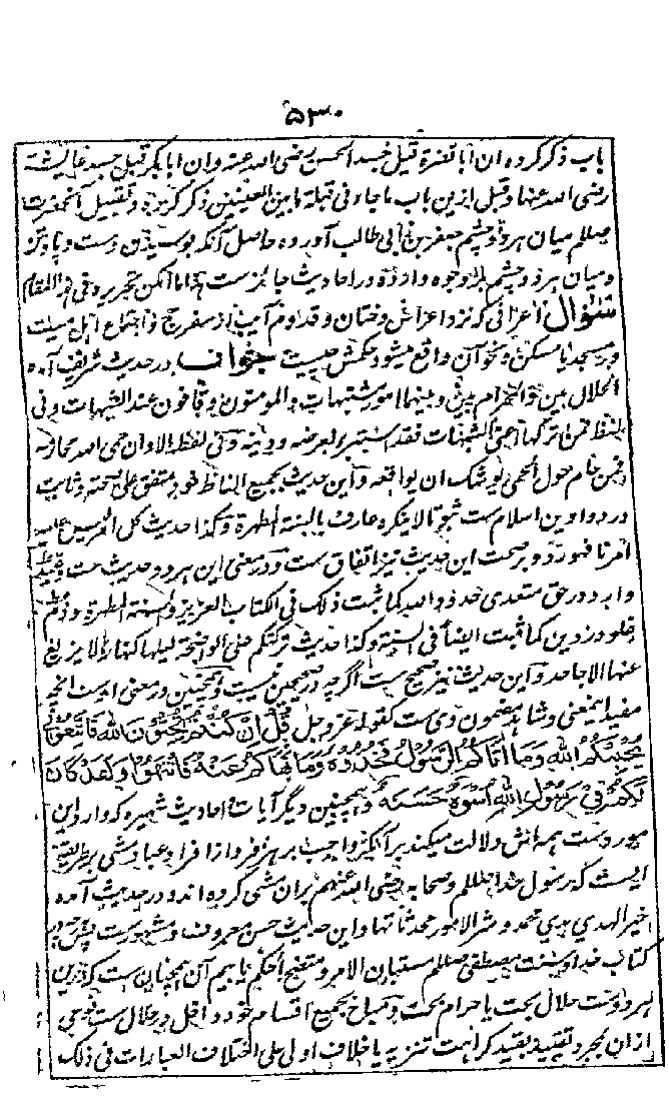 ۵۳۰
باب ذکر کرده ان ابا نضرة قبل خد الحسن رضی الله عنه وان ابابکر قبل خد عایشة
رضی الله عنها و قبل ازین باب ما جاء فی قبلة ما بین العینین ذکر کرده و تقبیل آنحضرت
صلعم میان هر دو چشم جعفر بن ابی طالب آورده حاصل آنکه بوسیدن دست و پا و
و میان هر دو چشم وجوه وارده در احادیث جائزست هذا ما امکن تحریره فی هذا المقام
سئوال اعراسی که نزد اعراس و ختان و قدوم آیب از سفر حج و اجتماع اهل میت
در مسجد یا مسکن و نحو آن واقع میشود حکمش چیست جواب در حدیث شریف آمده
الحلال بین والحرام بین و بینهما امور مشتبهات والمومنون وقافون عند الشبهات و فی
لفظ فمن ترکها اعنی الشبهات فقد استبرء لعرضه و دینه و فی لفظ الا وان حمی الله محارمه
فمن حام حول الحمی یوشک ان یواقعه و این حدیث بجمیع الفاظ خود متفق علی صحته و ثابت
در دواوین اسلام ست ثبوتا لا ینکره عارف بالسنة المطهرة و کذا حدیث کل امر لیس علیه
امرنا فهو رد و بر صحت این حدیث نیز اتفاق ست و در معنی این هر دو حدیث ست
وارد در حق متعدی حدود الله کما ثبت ذلک فی الکتاب العزیز والسنة المطهرة و ذم
غلو در دین کما ثبت ایضا فی السنة و کذا حدیث ترکتکم علی الواضحة لیلها کنهارها لا یزیغ
عنها الا جاحد و این حدیث نیز صحیح ست اگرچه در صحیحین نیست و همچنین در معنی اوست انچه
مفید اینمعنی و شاهد مضمون وی ست کقوله عز و جل قُلْ اِنْ کُنْتُمْ تُحِبُّوْنَ اللهَ فَاتَّبِعُوْنِیْ
یُحْبِبْکُمُ اللهُ وَمَا اٰتَاکُمُ الرَّسُوْلُ فَخُذُوْهُ وَمَا نَهَاکُمْ عَنْهُ فَانْتَهُوْا وَلَقَدْ کَانَ
لَکُمْ فِیْ رَسُوْلِ اللهِ اُسْوَةٌ حَسَنَةٌ و همچنین دیگر آیات و احادیث شهیره که وارد این
مورد ست همه اش دلالت میکند بر آنکه واجب بر هر فرد از افراد عباد مشی بر طریقه
ایست که رسول خدا صلعم و صحابه رضی الله عنهم بران مشی کرده اند و در حدیث آمده
خیر الهدی هدی محمد و شر الامور محدثاتها و این حدیث حسن معروف و مشهورست پس
کتاب خدا و سنت مصطفی صلعم مستبان الامر و متضح الحکم یابیم آن همچنان ست که درین
هر دوست حلال بحت یا حرام بحت و مباح بجمیع اقسام خود داخل در حلال ست
ازان بمجرد تقیید بقید کراهت تنزیه یا خلاف اولی علی اختلاف العبارات فی ذلک